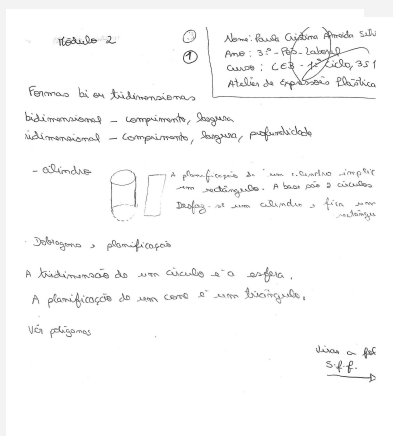 Módulo 2
1
Nome: Paula Cristina Almeida Silv
Ano: 3.º - Pós-Laboral
Curso: CEB - 1º Ciclo, 351
Atelier de Expressão Plástica
Formas bi ou tridimensionas
bidimensional - comprimento, largura
ridimensional - comprimento, largura, profundidade
- cilindro
A planificação de um cilindro implic
um rectângulo. A base são 2 círculos
Desfaz-se um cilindro e fica um
rectângu
Dobragens e planificação
A tridimensão do um círculo é a esfera.
A planificação do um cone é um triângulo.
Vár polígonos
Viras a fol
S.f.f.